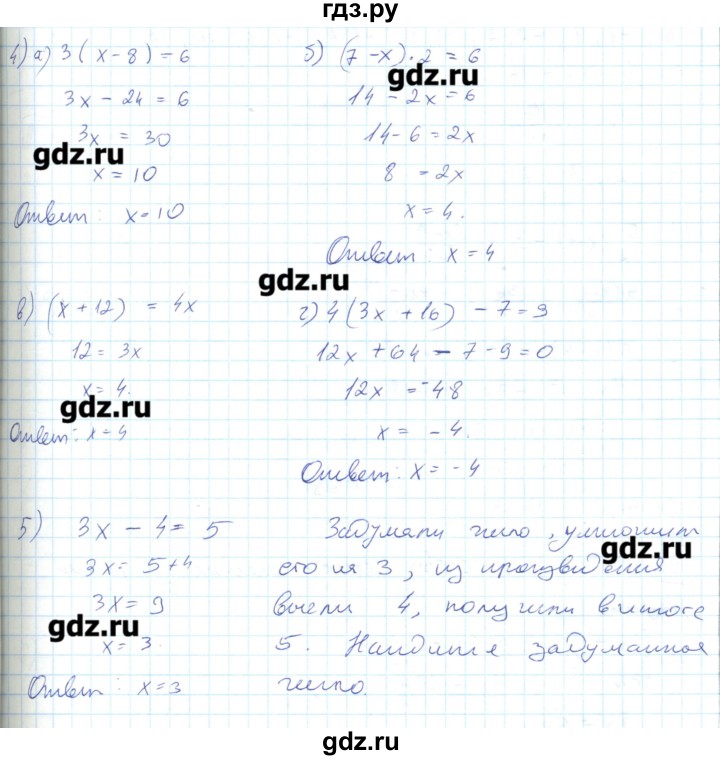 гдз.ру
4) а) 3(x-8) = 6
3x - 24 = 6
3x = 30
x = 10
Ответ: x=10
б) (7-x)·2 = 6
14 - 2x = 6
14 - 6 = 2x
8 = 2x
x = 4.
Ответ: x = 4
в) (x+12) = 4x
12 = 3x
x = 4.
Ответ: x = 4
г) 4(3x+16) - 7 = 9
12x + 64 - 7 - 9 = 0
12x = -48
x = -4.
Ответ: x = -4
5) 3x - 4 = 5
3x = 5+4
3x = 9
x = 3.
Ответ: x = 3
Задумали число, умножили
его на 3, из произведения
вычли 4, получили в итоге
5. Найдите задуманное
число.
gdz.ru
gdz.ru
gdz.ru
gdz.ru
gdz.ru
gdz.ru
gdz.ru